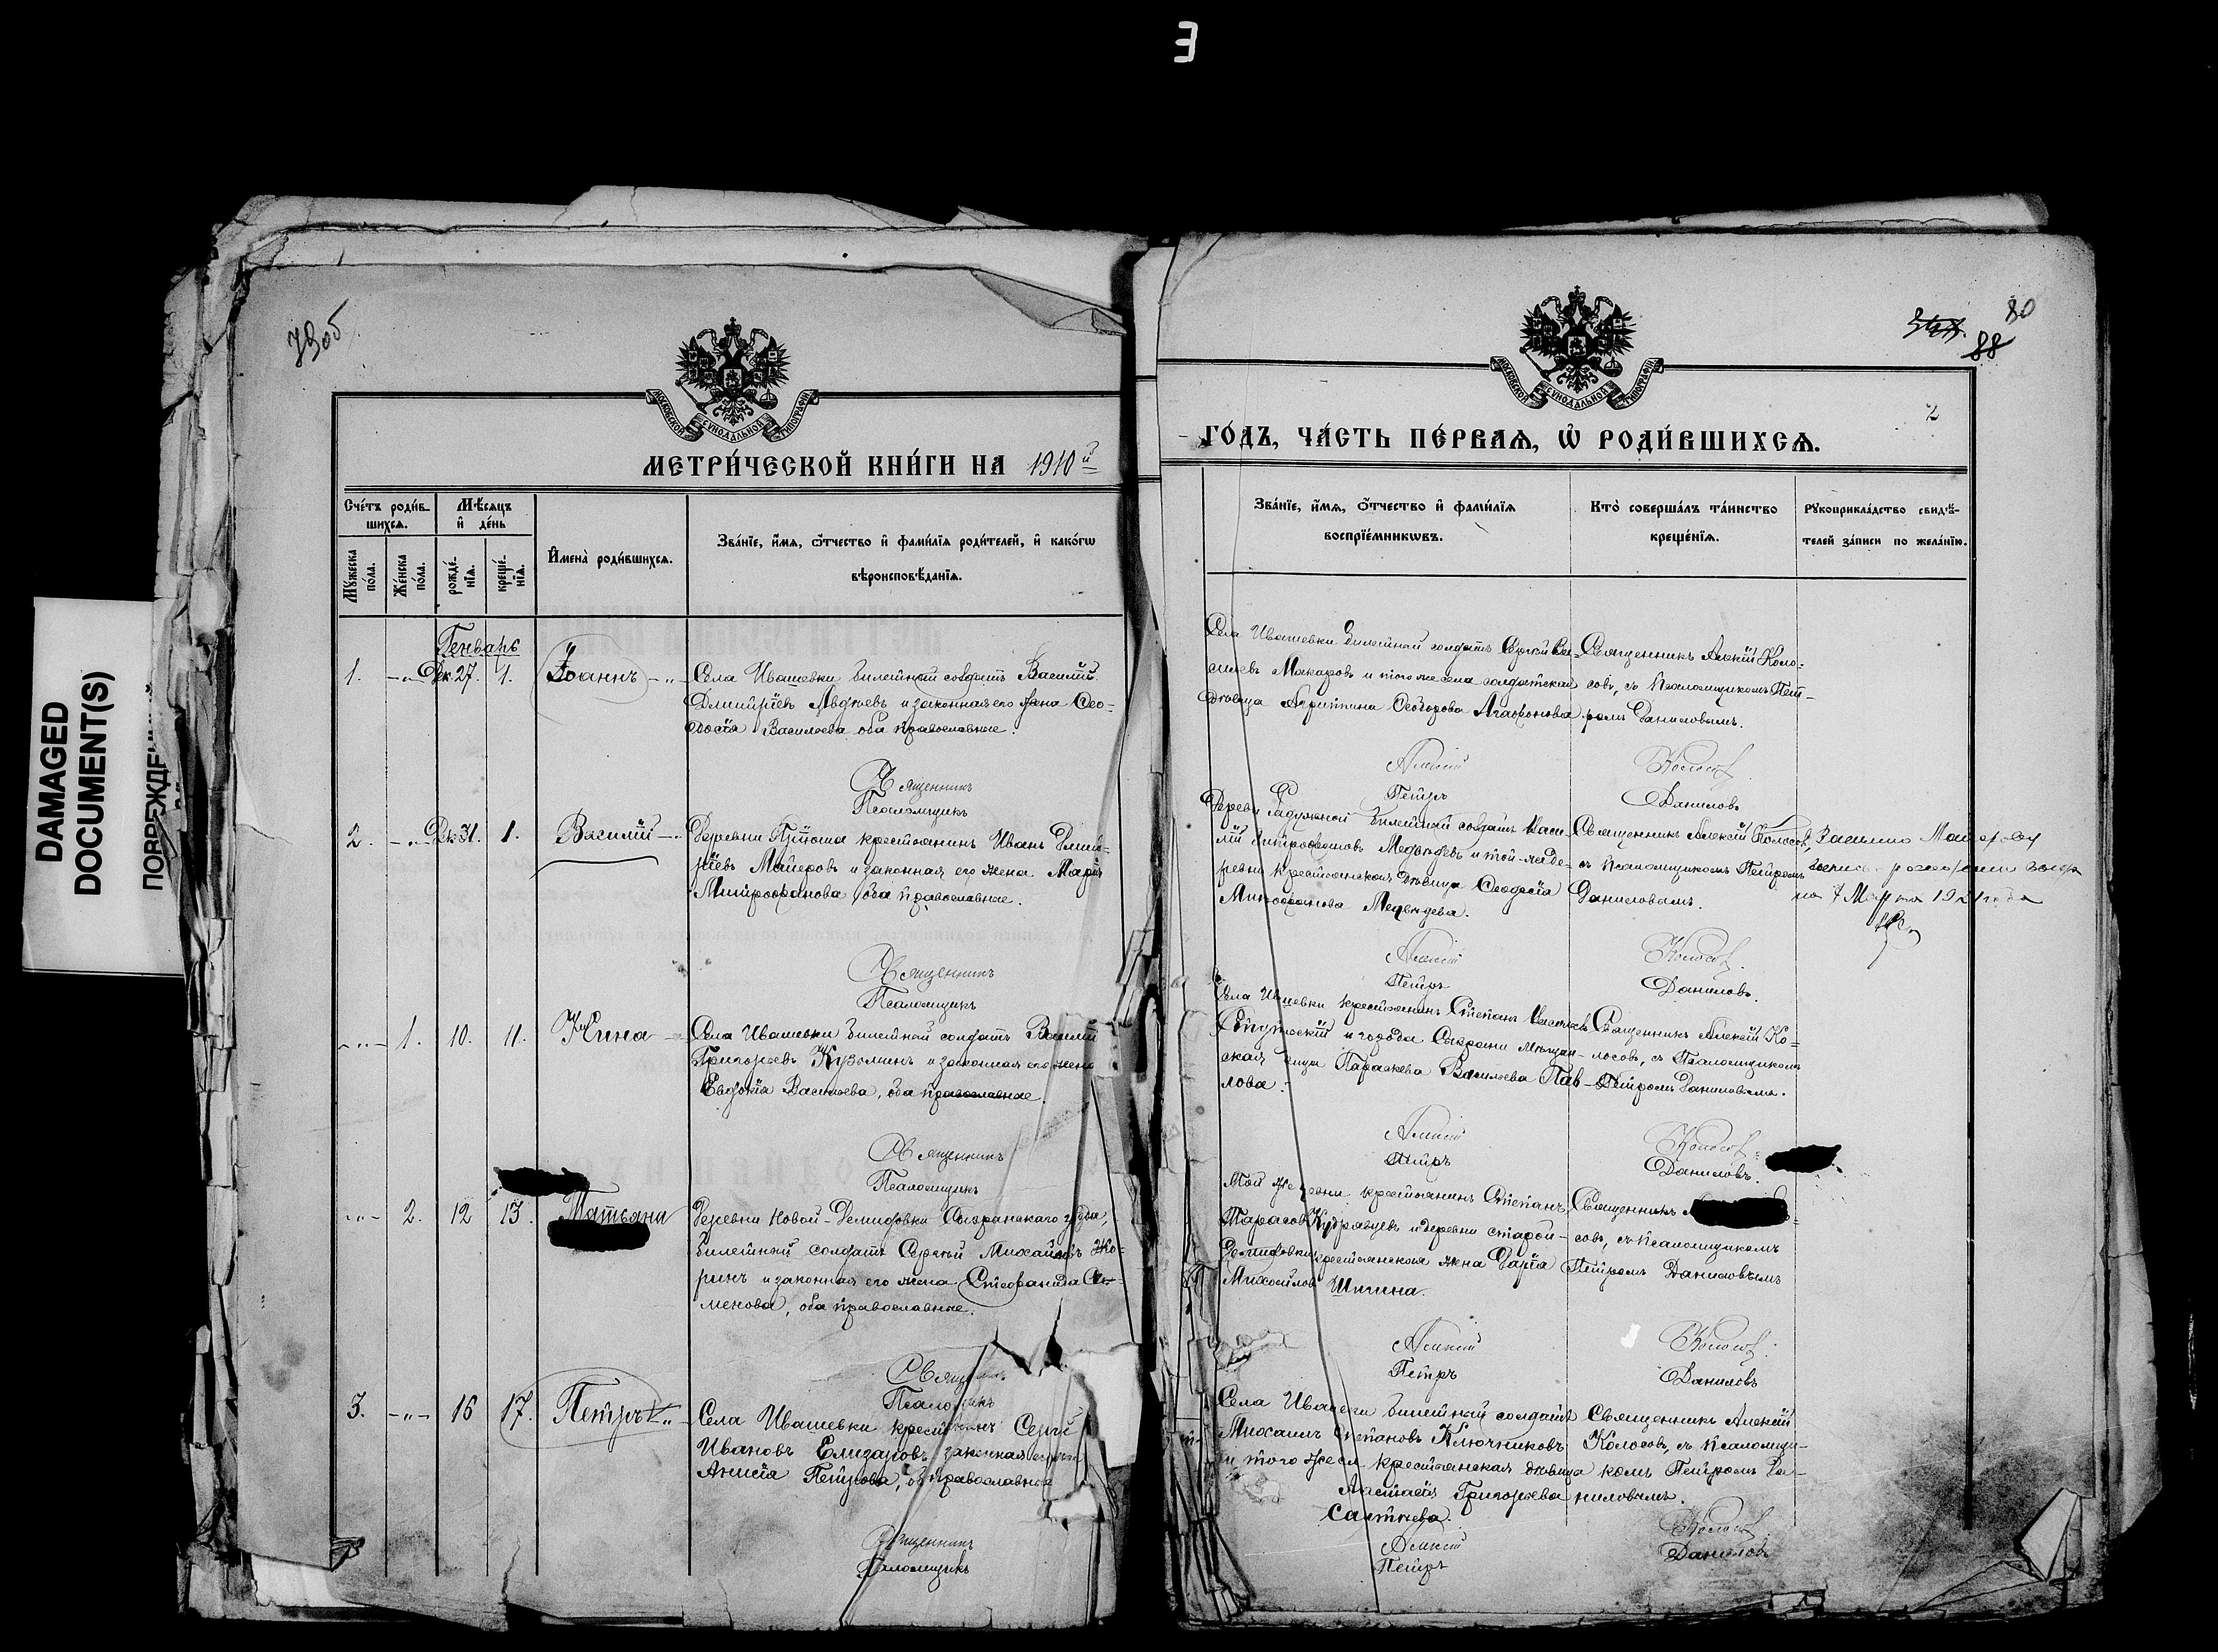 3
DAMAGED
DOCUMENT(S)
79об
МОСКОВСКОЙ СѴНОДАЛЬНОЙ ТИПОГРАФІИ
МЕТРИ́ЧЕСКОЙ КНИ́ГИ НА 1910й
Сче́тъ роди́в-
шихсѧ.
Мѣ́сѧцъ
и҆ де́нь
Мꙋ́жеска
по́ла.
Же́нска
по́ла.
рожде́-
нїѧ.
креще́-
нїѧ.
И҆мена̀ роди́вшихсѧ.
Зва́нїе, и҆́мѧ, ѻ҆́тчество и҆ фами́лїѧ роди́телей, и҆ како́гѡ
вѣроисповѣ́данїѧ.
Генварь
1. -„- Дек. 27. 1. Іоаннъ -„- Села Ивашевки билетный солдатъ Василій
Димитріевъ Авдѣевъ и законная его жена Ѳео-
досія Васильева оба православные.
Священникъ
Псаломщикъ
2. -„- Дек. 31. 1. Василій -„- Деревни крестьянинъ Иванъ Димит-
ріевъ Майеровъ и законная его жена Марія
Митрофанова оба православные.
Священникъ
Псаломщикъ
-„- 1. 10. 11. Нина Села Ивашевки билетный солдатъ Василій
Григорьевъ Кузьминъ и законная его жена
Евдокія Васильева, оба православные.
Священникъ
Псаломщикъ
-„- 2. 12 13. Татьяна Деревни Новой-Демидовки Сызранскаго уѣзда,
билетный солдатъ Сергѣй Михайловъ Жо-
ринъ и законная его жена Стефанида Се-
менова, оба православные.
Священникъ
Псаломщикъ
3. -„- 16 17. Петръ -„- Села Ивашевки крестьянинъ Сергѣй
Ивановъ Елизаровъ законная его жена
Анисія Петрова, оба православные
Священникъ
Псаломщикъ
80
88
2
МОСКОВСКОЙ СѴНОДАЛЬНОЙ ТИПОГРАФІИ
ГО́ДЪ, ЧА́СТЬ ПЕ́РВАѦ, Ѡ҆ РОДИ́ВШИХСѦ.
Зва́нїе, и҆́мѧ, ѻ҆́тчество и҆ фами́лїѧ
воспрїе́мникѡвъ.
Кто̀ соверша́лъ та́инство
креще́нїѧ.
Рꙋкоприкла́дство свидѣ́-
телей за́писи по жела́нїю.
Села Ивашевки билетный солдатъ Сергѣй Ва-
сильевъ Макаровъ и того же села солдатская
дѣвица Агриппина Ѳеодорова Агафонова
Священникъ Алексій Коло-
совъ, съ Псаломщикомъ Пет-
ромъ Даниловымъ.
Алексій Колосовъ
Петръ Даниловъ
Деревни Радужной билетный солдатъ Васи-
лій Митрофановъ Медвѣдевъ и той-же де-
ревни крестьянская дѣвица Ѳеодосія
Митрофанова Медвѣдева.
Священникъ Алексій Колосовъ,
съ Псаломщикомъ Петромъ
Даниловымъ.
7 Марта 1921 года
Алексій Колосовъ.
Петръ Даниловъ.
Села Ивашевки крестьянинъ Степанъ
и города Сызрани мѣщан-
ская Параскева Васильева Пав-
лова.
Священникъ Алексій Ко-
лосовъ, съ Псаломщикомъ
Петромъ Даниловымъ.
Алексій Колосовъ.
Петръ Даниловъ.
Той же деревни крестьянинъ Степанъ
Тарасовъ Кудрявцевъ и деревни старой-
Демидовки крестьянская жена Дарія
Михайлова Шигина.
Священникъ
совъ, съ Псаломщикомъ
Петромъ Даниловымъ
Алексій Колосовъ.
Петръ Даниловъ
Села Ивашевки билетный солдатъ
Михаилъ Степановъ Ключниковъ
и того же села крестьянская дѣвица
Анастасія Григорьева
Священникъ Алексій
Колосовъ, съ Псаломщи-
комъ Петромъ Да-
ниловымъ.
Алексій Колосовъ.
Петръ Даниловъ